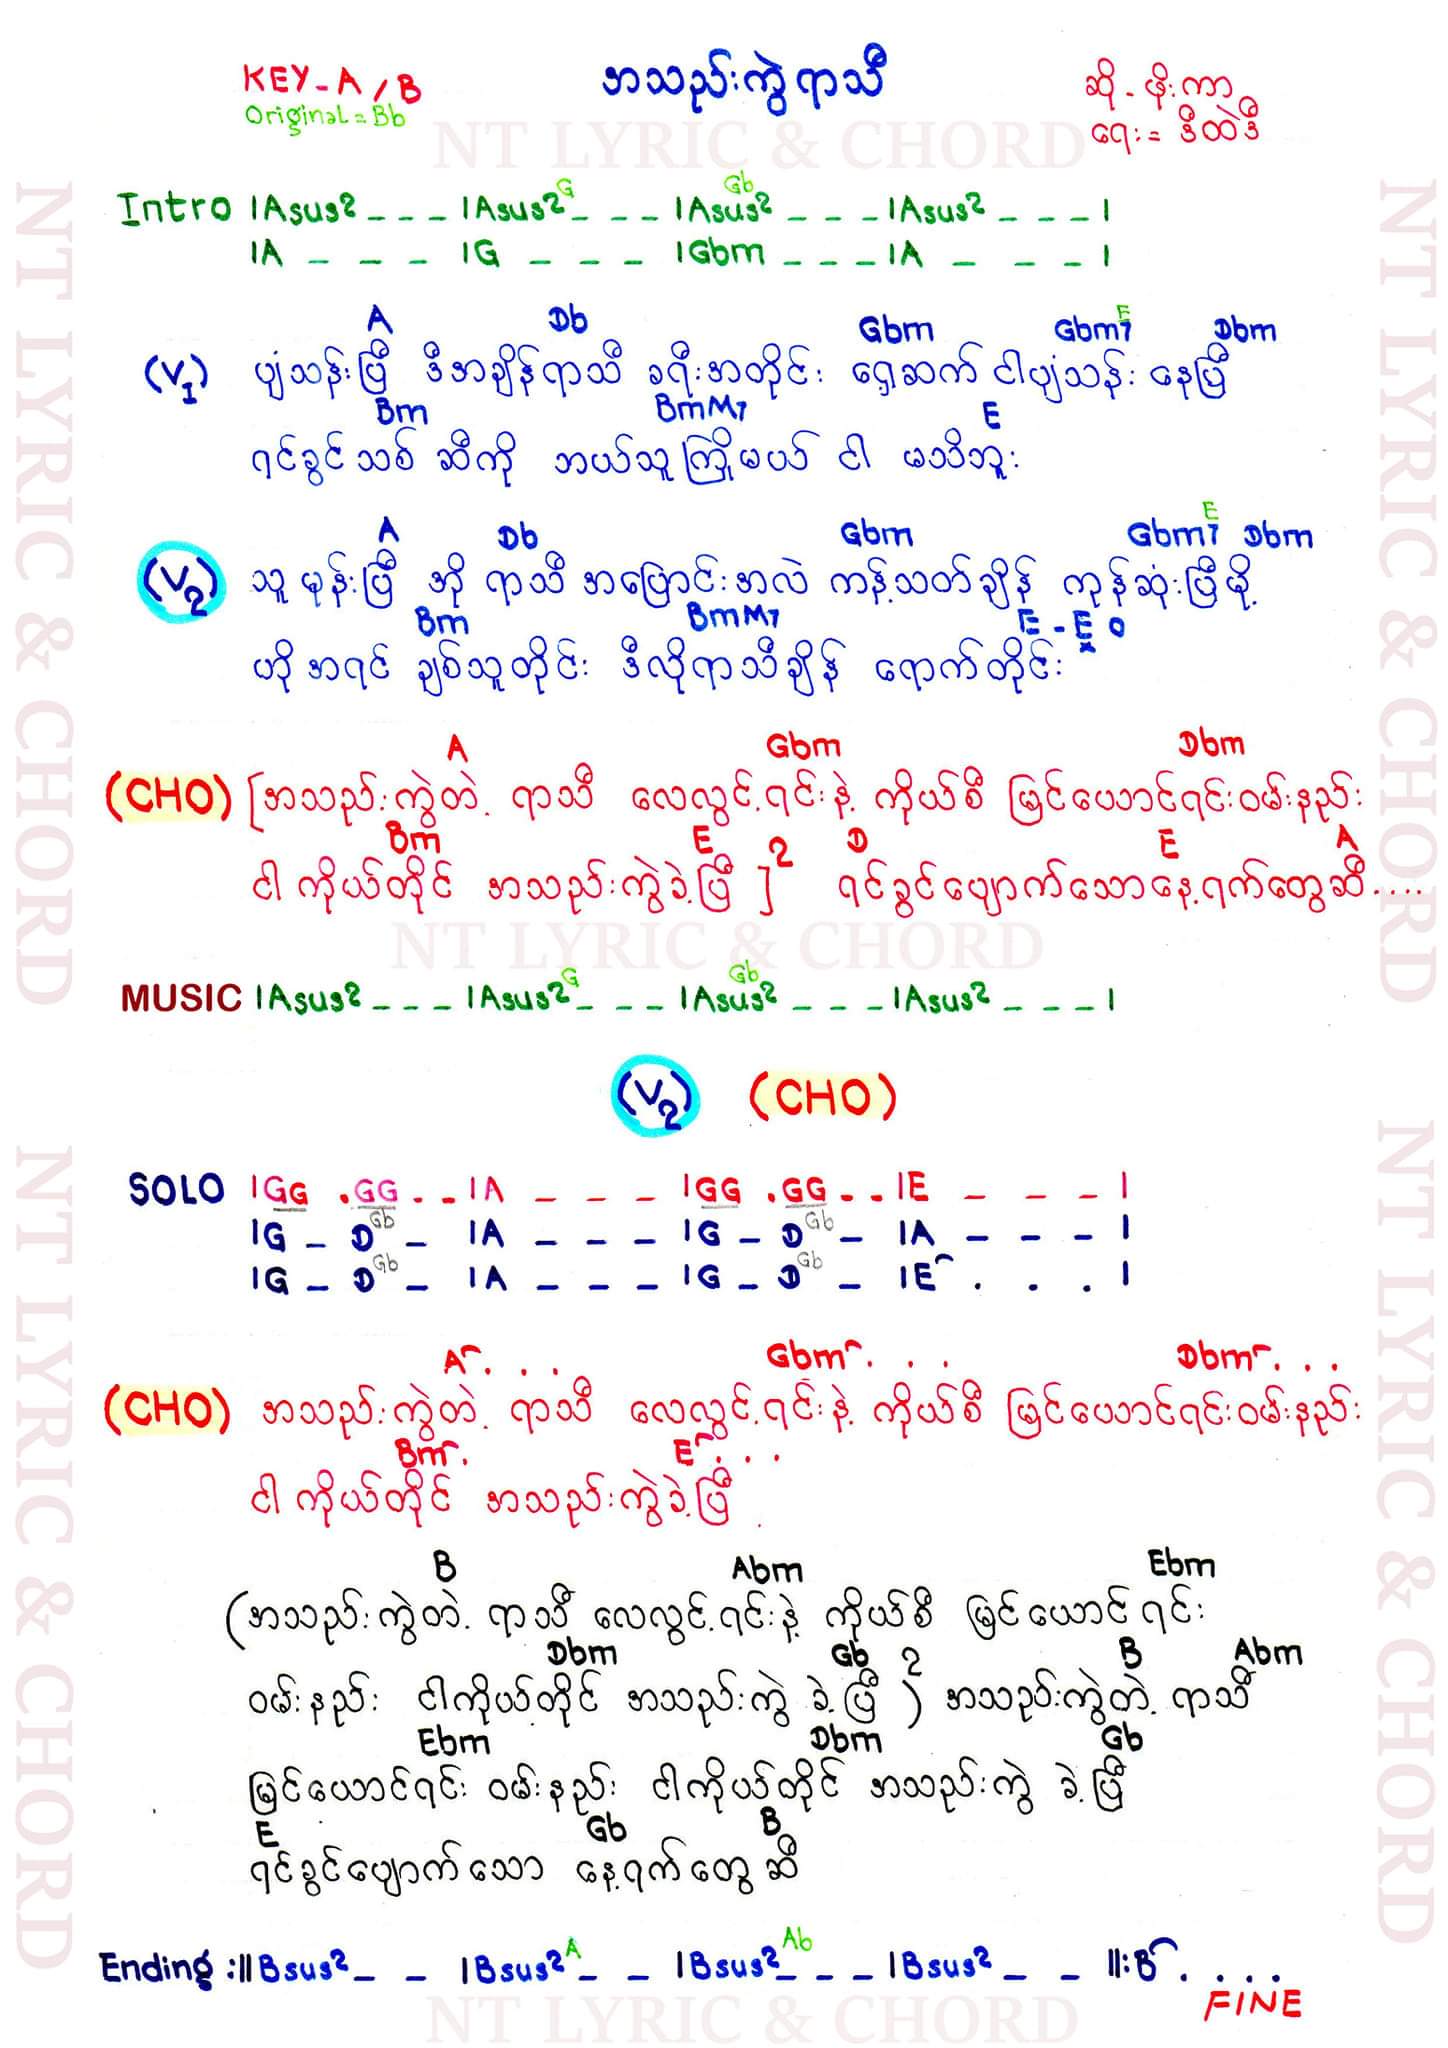 KEY - A / B
Original = Bb
အသည်းကွဲရာသီ
ဆို - ဖိုးကာ
ရေး = ဒီထဲဒီ
NT LYRIC & CHORD
Intro |Asus2 _ _ _ |Asus2 G _ _ _ |Asus2 Gb _ _ _ |Asus2 _ _ _ |
|A _ _ _ |G _ _ _ |Gbm _ _ _ |A _ _ _ |
A Db Gbm Gbm7 E Dbm
(V1) ပျံသန်းပြီ ဒီအချိန်ရာသီ ခရီးအတိုင်း ရှေ့ဆက် ငါပျံသန်း နေပြီ
Bm BmM7 E
ရင်ခွင်သစ် ဆီကို ဘယ်သူကြိုမယ် ငါ မသိဘူး
A Db Gbm Gbm7 E Dbm
(V2) သူမုန်းပြီ အို ရာသီအပြောင်းအလဲ ကန့်သတ်ချိန် ကုန်ဆုံးပြီမို့
Bm BmM7 E - E x 0
ဟိုအရင် ချစ်သူတိုင်း ဒီလိုရာသီချိန် ရောက်တိုင်း
A Gbm Dbm
(CHO) [အသည်းကွဲတဲ့ ရာသီ လေလွင့်ရင်းနဲ့ ကိုယ်စီ မြင်ယောင်ရင်းဝမ်းနည်း
Bm E 2 D E A
ငါကိုယ်တိုင် အသည်းကွဲခဲ့ပြီ ] ရင်ခွင်ပျောက်သောနေ့ရက်တွေဆီ....
NT LYRIC & CHORD
MUSIC |Asus2 _ _ _ |Asus2 G _ _ _ |Asus2 Gb _ _ _ |Asus2 _ _ _ |
(V2) (CHO)
SOLO |GG . GG . - |A _ _ _ |GG . GG - . |E _ _ _ |
|G _ D Gb _ |A _ _ _ |G _ D Gb _ |A _ _ _ |
|G _ D Gb _ |A _ _ _ |G _ D Gb _ |E . . . |
A . . . Gbm . . . Dbm . . .
(CHO) အသည်းကွဲတဲ့ ရာသီ လေလွင့်ရင်းနဲ့ ကိုယ်စီ မြင်ယောင်ရင်းဝမ်းနည်း
Bm . E . . .
ငါကိုယ်တိုင် အသည်းကွဲခဲ့ပြီ
B Abm Ebm
(အသည်းကွဲတဲ့ ရာသီ လေလွင့်ရင်းနဲ့ ကိုယ်စီ မြင်ယောင်ရင်း
Dbm Gb 2 B Abm
ဝမ်းနည်း ငါကိုယ်တိုင် အသည်းကွဲ ခဲ့ပြီ ) အသည်းကွဲတဲ့ ရာသီ
Ebm Dbm Gb
မြင်ယောင်ရင်း ဝမ်းနည်း ငါကိုယ်တိုင် အသည်းကွဲ ခဲ့ပြီ
E Gb B
ရင်ခွင်ပျောက်သော နေ့ရက်တွေ ဆီ
Ending :||Bsus2 _ _ |Bsus2 A _ _ |Bsus2 Ab _ _ _ |Bsus2 _ _ ||:B . . . .
FINE
NT LYRIC & CHORD
NT LYRIC & CHORD
NT LYRIC & CHORD
NT LYRIC & CHORD
NT LYRIC & CHORD